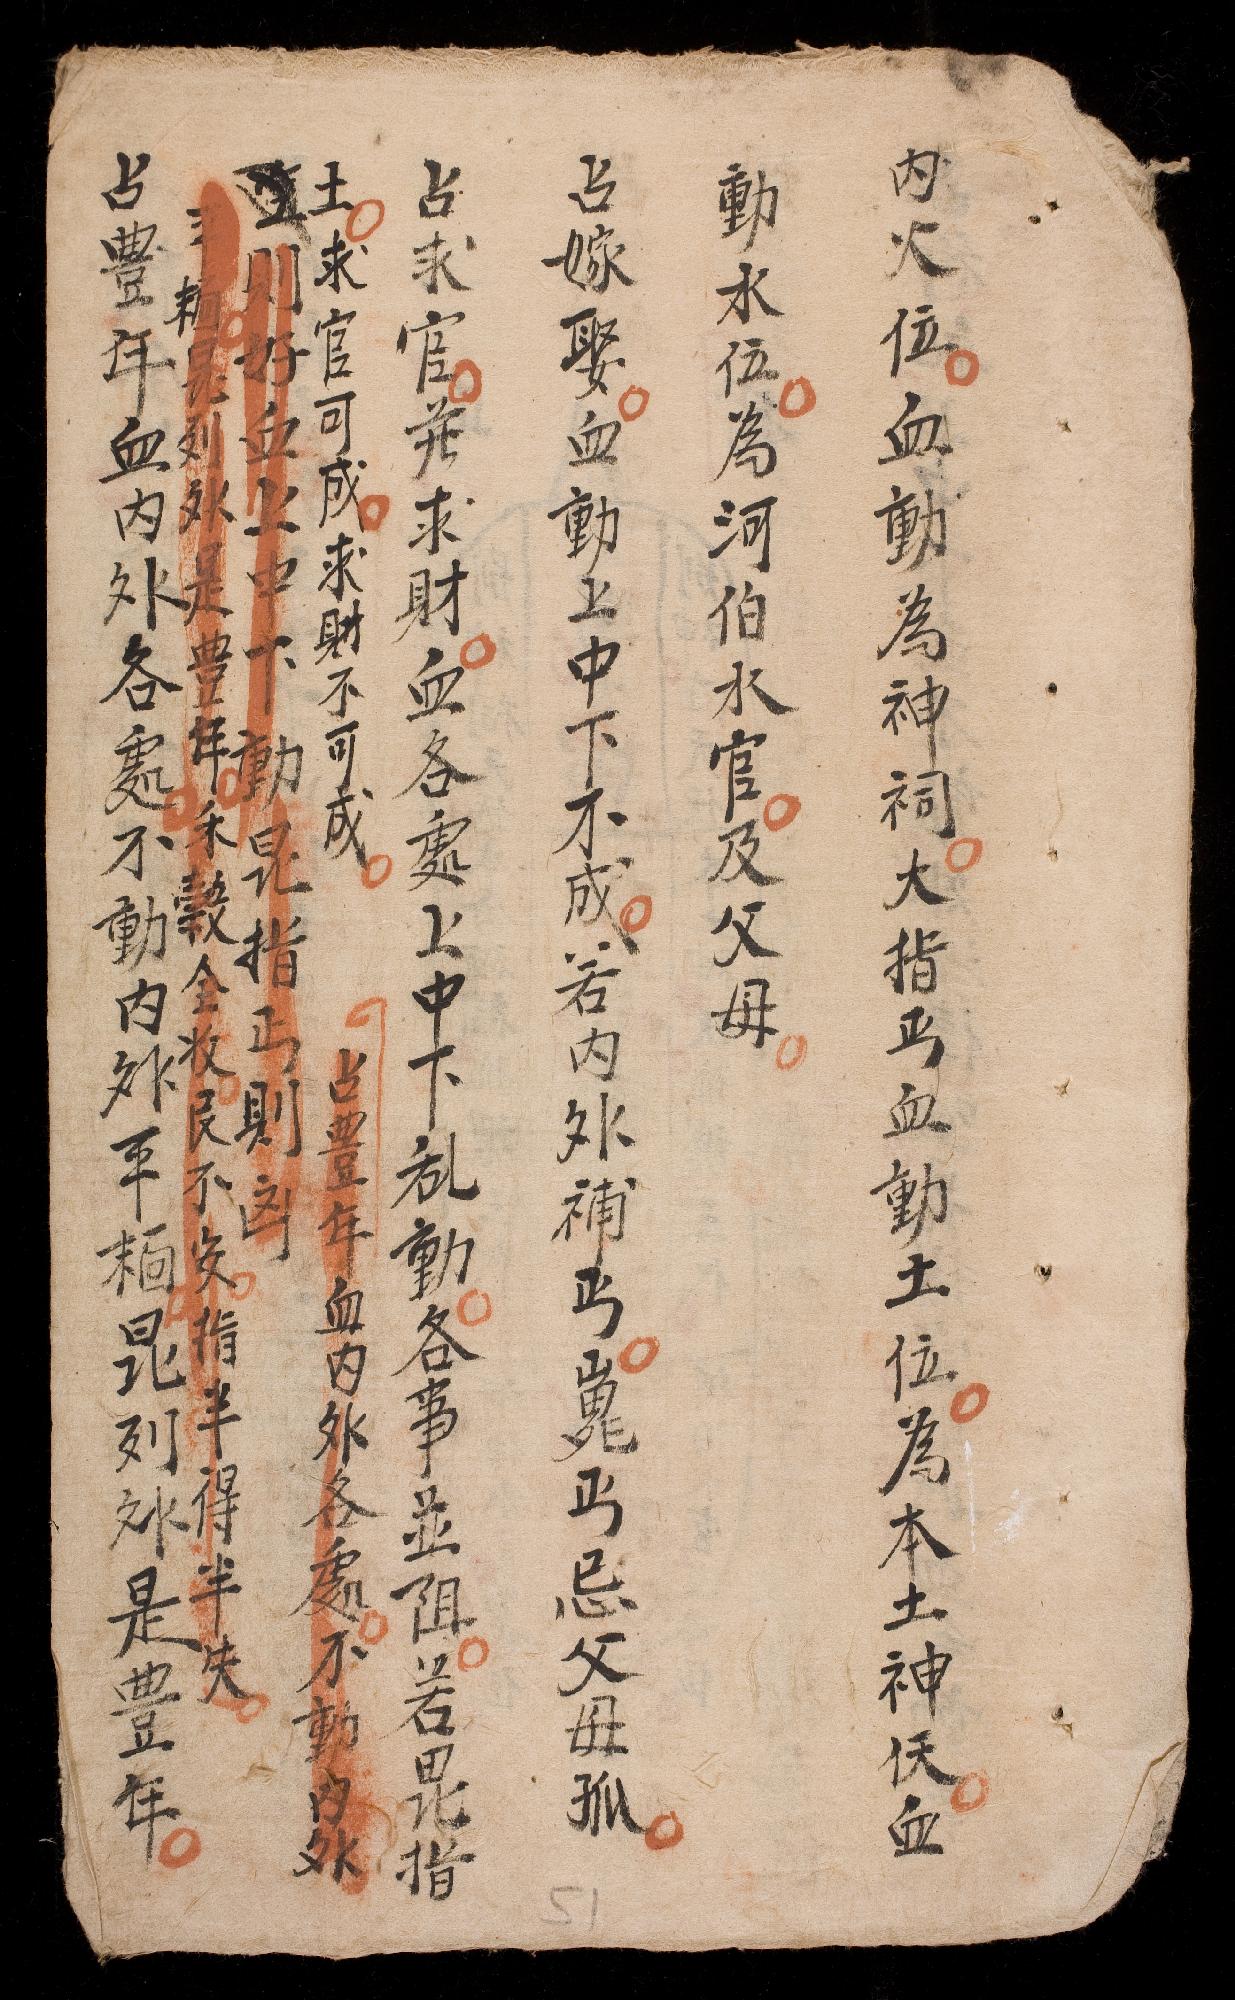 内火位血動為神祠大指丐血動土位為本土神伏血
動水位為河伯水官及父母
占嫁娶血動上中下不成若内外補丐嵬丐忌父母孤
占求官并求財血各處上中下乱動各事並阻若昆指
土求官可成求財不可成
占豊年血内外各處不動内外
則好血上中下動昆指丐則凶
昆列外是豊年禾穀全收民不安指半得半失
占豊年血内外各處不動内外平 昆列外是豊年
12